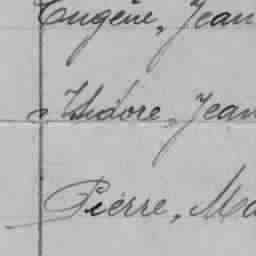 Eugène, Jean
Isidore, Jean
Pierre, Ma